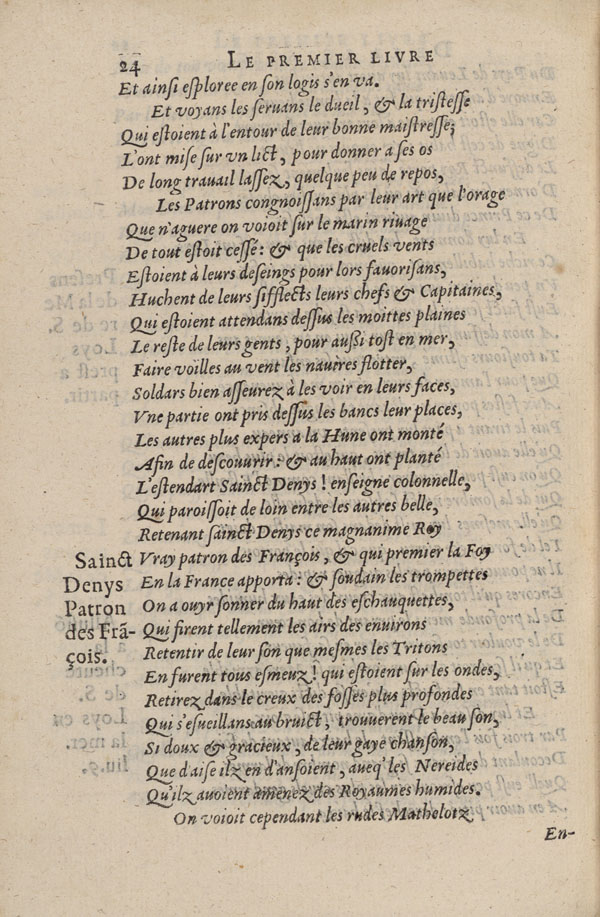 24 LE PREMIER LIVRE
Et ainsi esploree en son logis s'en va.
Et voyans les seruans le dueil, & la tristesse
Qui estoient à l'entour de leur bonne maistresse;
L'ont mise sur vn lict, pour donner a ses os
De long trauail lassez, quelque peu de repos,
Les Patrons congnoissans par leur art que l'orage
Que n'aguere on voioit sur le marin riuage
De tout estoit cessé: & que les cruels vents
Estoient à leurs deseings pour lors fauorisans,
Huchent de leurs sifflects leurs chefs & Capitaines,
Qui estoient attendans dessus les moittes plaines
Le reste de leurs gents, pour aussi tost en mer,
Faire voilles au vent les nauires flotter,
Soldars bien asseurez à les voir en leurs faces,
Vne partie ont pris dessus les bancs leur places,
Les autres plus expers a la Hune ont monté
Afin de descouurir: & au haut ont planté
L'estendart Sainct Denys! enseigne colonnelle,
Qui paroissoit de loin entre les autres belle,
Retenant sainct Denys ce magnanime Roy
Vray patron des François, & qui premier la Foy
En la France apporta: & soudain les trompettes
On a ouyr sonner du haut des eschauquettes,
Qui firent tellement les airs des enuirons
Retentir de leur son que mesmes les Tritons
En furent tous esmeuz! qui estoient sur les ondes,
Retirez dans le creux des fosses plus profondes
Qui s'esueillans au bruict, trouuerent le beau son,
Si doux & gracieux, de leur gaye chanson,
Que d'aise ilz en d'ansoient, aueq' les Nereides
Qu'ilz auoient amenez des Royaumes humides.
On voioit cependant les rudes Mathelotz
En-
Sainct
Denys
Patron
des Frã-
çois.